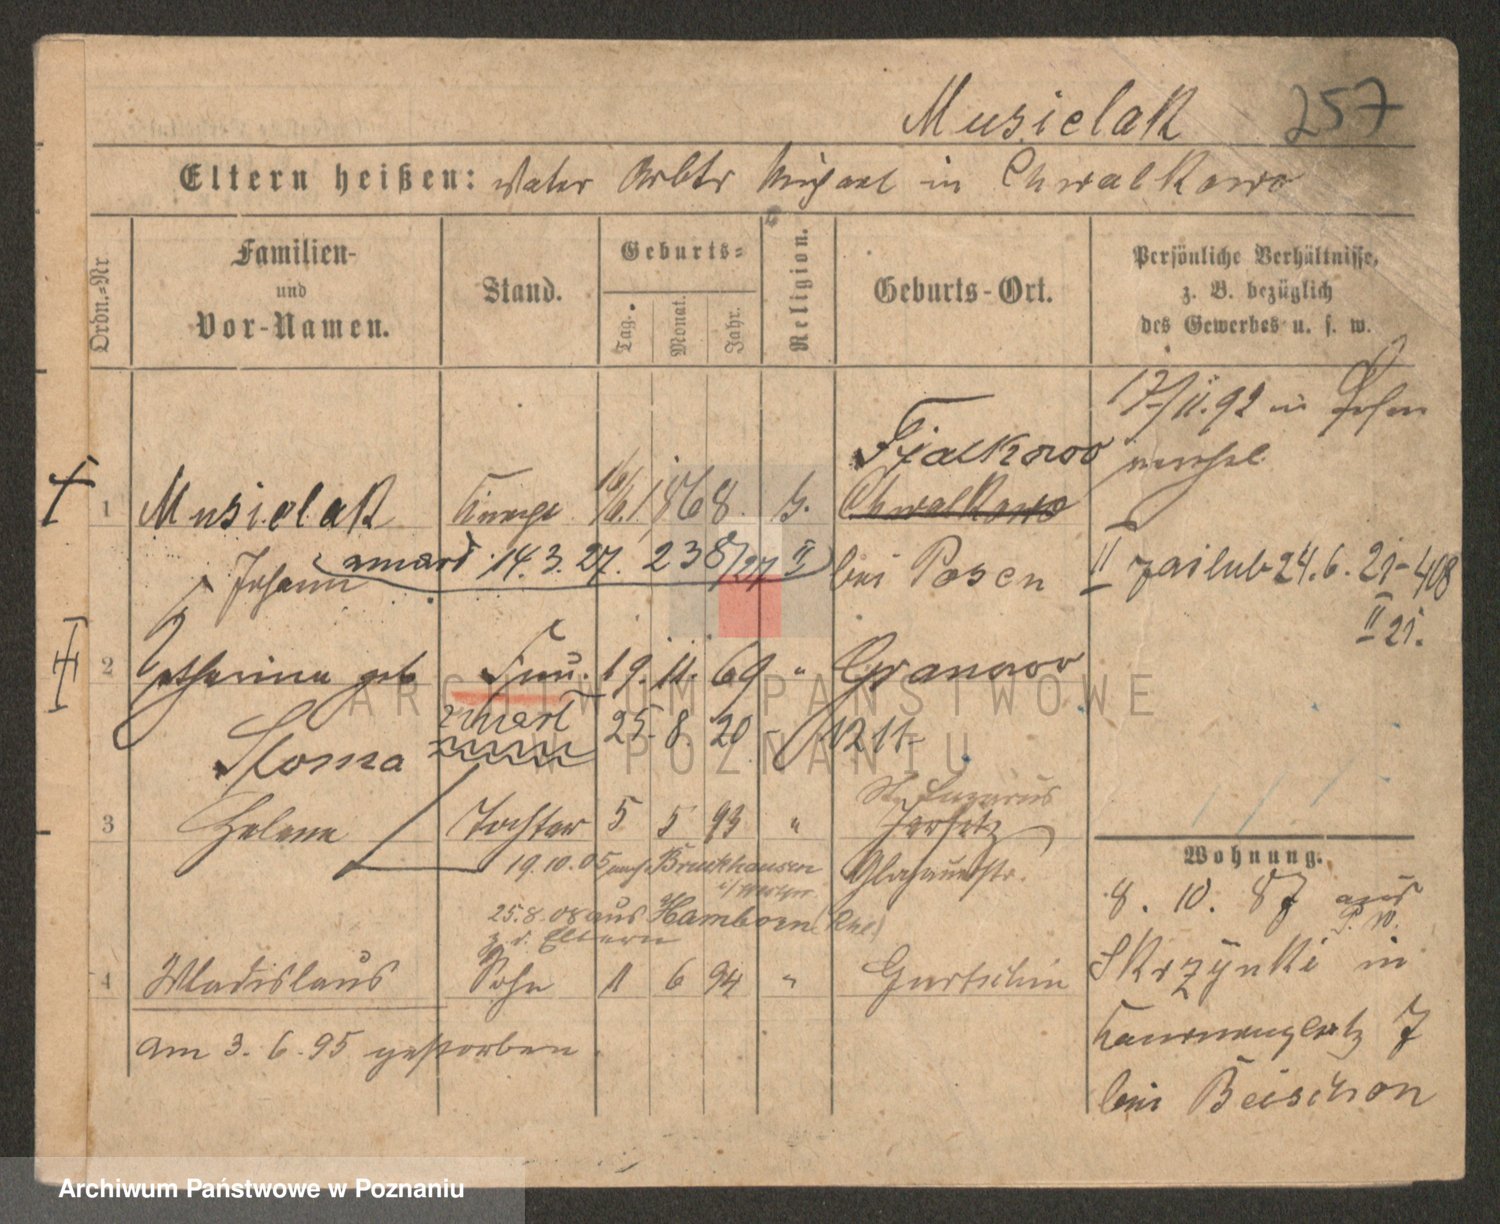 Musielak 257
Eltern heißen: Vater Arbtr Michael in Chwalkowo
Ordn.-Nr
Familien-
und
Vor-Namen.
Stand.
Geburts-
Tag. Monat. Jahr.
Religion.
Geburts-Ort.
Persönliche Verhältnisse,
z. B. bezüglich
des Gewerbes u. s. w.
17/11.92 in Posen
Fialkowo
1 Musielak 16/6. 1868. Chwalkowo
Johann zmarł 14.3.27. 238/27 II bei Posen
II 24.6.21-408
II 21.
2 Catharina geb Frau. 19. 11. 69 " Granowo
Stoma zmarł 25. 8. 20 - 1211-
St. Lazarus
3 Helene Tochter 5 5 93 " Jersitz
19.10.05 nach Bruckhausen Glogauerstr.
25.8.08 aus Hamborn (Rhl)
z. d. Eltern
4 Wladislaus Sohn 1 6 94 " Gurtschin
am 3. 6. 95 gestorben.
Wohnung.
8. 10. 87 aus
Skrzynki in
7
bei
ARCHIWUM PAŃSTWOWE
W POZNANIU
Archiwum Państwowe w Poznaniu